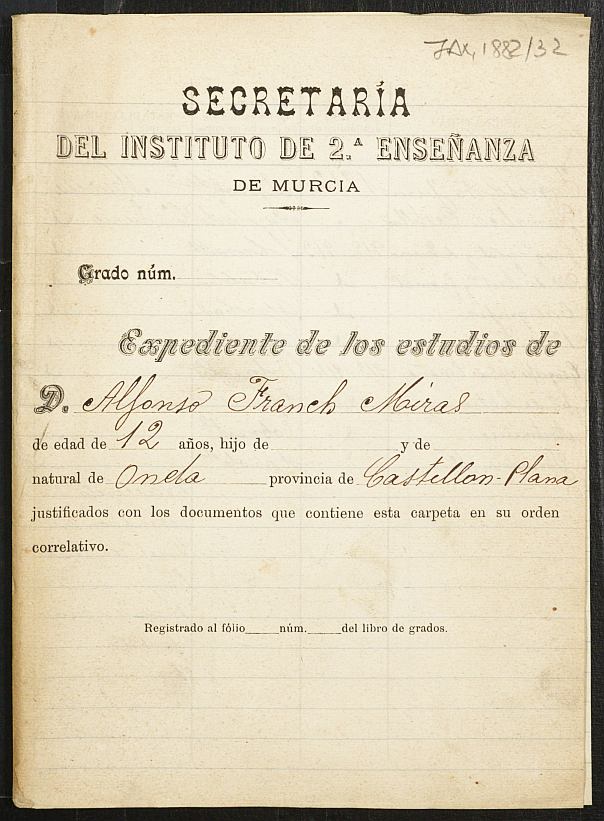 JAX, 1882/32
SECRETARÍA
DEL INSTITUTO DE 2.ᴬ ENSEÑANZA
DE MURCIA
Grado núm.
Expediente de los estudios de
D. Alfonso Franch Miras
de edad de 12 años, hijo de y de
natural de Onda provincia de Castellon-Plana
justificados con los documentos que contiene esta carpeta en su orden
correlativo.
Registrado al fólio núm. del libro de grados.